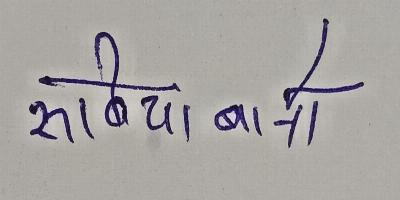 साबिया बानो